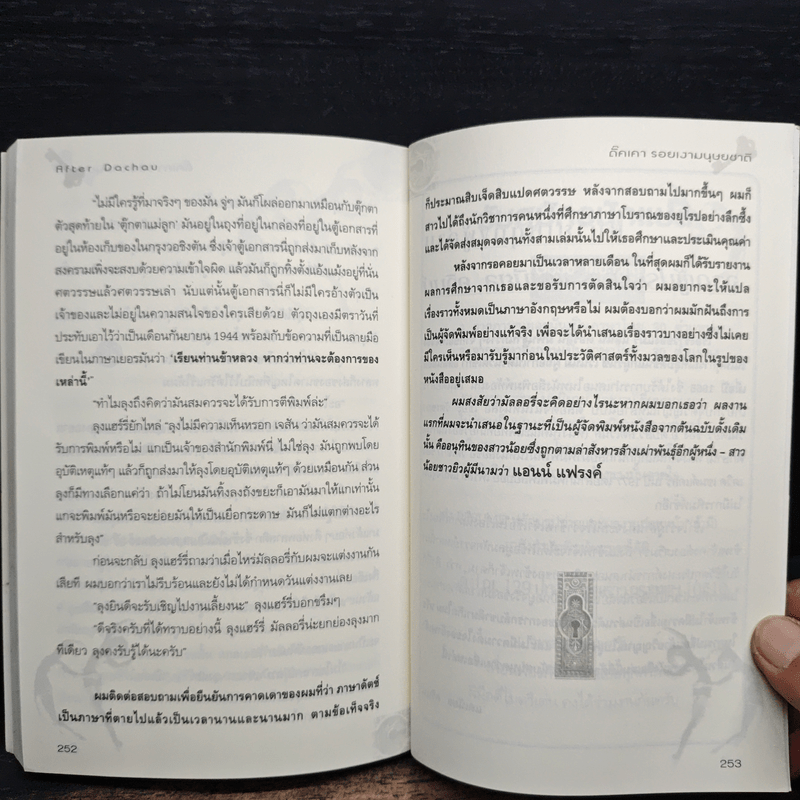 After Dachau
"ไม่มีใครรู้ที่มาจริงๆ ของมัน จู่ๆ มันก็โผล่ออกมาเหมือนกับตุ๊กตา
ตัวสุดท้ายใน 'ตุ๊กตาแม่ลูก' มันอยู่ในถุงที่อยู่ในกล่องที่อยู่ในตู้เอกสารที่
อยู่ในห้องเก็บของในกรุงวอชิงตัน ซึ่งเจ้าตู้เอกสารนี่ถูกส่งมาเก็บหลังจาก
สงครามเพิ่งจะสงบด้วยความเข้าใจผิด แล้วมันก็ถูกทิ้งตั้งแอ้งแม้งอยู่ที่นั่น
ศตวรรษแล้วศตวรรษเล่า นับแต่นั้นตู้เอกสารนี่ก็ไม่มีใครอ้างตัวเป็น
เจ้าของและไม่อยู่ในความสนใจของใครเสียด้วย ตัวถุงเองมีตราวันที่
ประทับเอาไว้ว่าเป็นเดือนกันยายน 1944 พร้อมกับข้อความที่เป็นลายมือ
เขียนในภาษาเยอรมันว่า 'เรียนท่านข้าหลวง หากว่าท่านจะต้องการของ
เหล่านี้'"
"ทำไมลุงถึงคิดว่ามันสมควรจะได้รับการตีพิมพ์ล่ะ"
ลุงแฮร์รี่ยักไหล่ "ลุงไม่มีความเห็นหรอก เจสัน ว่ามันสมควรจะได้
รับการพิมพ์หรือไม่ แกเป็นเจ้าของสำนักพิมพ์นี่ ไม่ใช่ลุง มันถูกพบโดย
อุบัติเหตุแท้ๆ แล้วก็ถูกส่งมาให้ลุงโดยอุบัติเหตุแท้ๆ ด้วยเหมือนกัน ส่วน
ลุงก็มีทางเลือกแค่ว่า ถ้าไม่โยนมันทิ้งลงถังขยะก็เอามันมาให้แกเท่านั้น
แกจะพิมพ์มันหรือจะย่อยมันให้เป็นเยื่อกระดาษ มันก็ไม่แตกต่างอะไร
สำหรับลุง"
ก่อนจะกลับ ลุงแฮร์รี่ถามว่าเมื่อไหร่มัลลอรี่กับผมจะแต่งงานกัน
เสียที ผมบอกว่าเราไม่รีบร้อนและยังไม่ได้กำหนดวันแต่งงานเลย
"ลุงยินดีจะรับเชิญไปงานเลี้ยงนะ" ลุงแฮร์รี่บอกขรึมๆ
"ดีจริงครับที่ได้ทราบอย่างนี้ ลุงแฮร์รี่ มัลลอรี่น่ะยกย่องลุงมาก
ทีเดียว ลุงคงรับรู้ได้นะครับ"
ผมติดต่อสอบถามเพื่อยืนยันการคาดเดาของผมที่ว่า ภาษาดัตช์
เป็นภาษาที่ตายไปแล้วเป็นเวลานานและนานมาก ตามข้อเท็จจริง
252
ด็คเคา รอยเงามนุษยชาติ
ก็ประมาณสิบเจ็ดสิบแปดศตวรรษ หลังจากสอบถามไปมากขึ้นๆ ผมก็
สาวไปได้ถึงนักวิชาการคนหนึ่งที่ศึกษาภาษาโบราณของยุโรปอย่างลึกซึ้ง
และได้จัดส่งสมุดจดงานทั้งสามเล่มนั้นไปให้เธอศึกษาและประเมินคุณค่า
หลังจากรอคอยมาเป็นเวลาหลายเดือน ในที่สุดผมก็ได้รับรายงาน
ผลการศึกษาจากเธอและขอรับการตัดสินใจว่า ผมอยากจะให้แปล
เรื่องราวทั้งหมดเป็นภาษาอังกฤษหรือไม่ ผมต้องบอกว่าผมมักฝันถึงการ
เป็นผู้จัดพิมพ์อย่างแท้จริง เพื่อจะได้นำเสนอเรื่องราวบางอย่างซึ่งไม่เคย
มีใครเห็นหรือมารับรู้มาก่อนในประวัติศาสตร์ทั้งมวลของโลกในรูปของ
หนังสืออยู่เสมอ
ผมสงสัยว่ามัลลอรี่จะคิดอย่างไรนะหากผมบอกเธอว่า ผลงาน
แรกที่ผมจะนำเสนอในฐานะที่เป็นผู้จัดพิมพ์หนังสือจากต้นฉบับดั้งเดิม
นั้น คืออนุทินของสาวน้อยซึ่งถูกตามล่าสังหารล้างเผ่าพันธุ์อีกผู้หนึ่ง – สาว
น้อยชาวยิวผู้มีนามว่า แอนน์ แฟรงค์
253